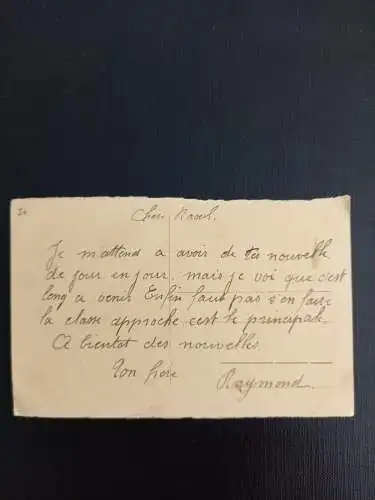 Cher Raoul.
Je m'attend a avoir de tes nouvelle
de jour en jour. mais je voi que c'est
long a venir Enfin faut pas s'en faire
la classe approche c'est le principale.
A bientot des nouvelles.
Ton frere
Raymond.